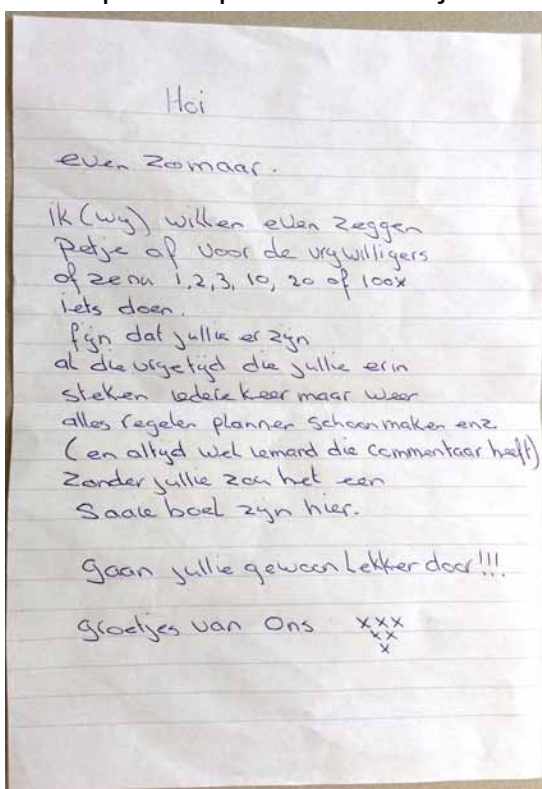 Hoi
even zomaar.
ik (wy) willen even zeggen
petje af voor de vrywilligers
of ze nu 1, 2, 3, 10, 20 of 100x
iets doen.
fijn dat jullie er zijn
al die vrijetijd die jullie erin
steken iedere keer maar weer
alles regelen plannen schoonmaken enz
(en altyd wel iemand die commentaar heeft)
Zonder jullie zou het een
Saaie boel zijn hier.
Gaan jullie gewoon lekker door!!!
groetjes van Ons xxx
xx
x